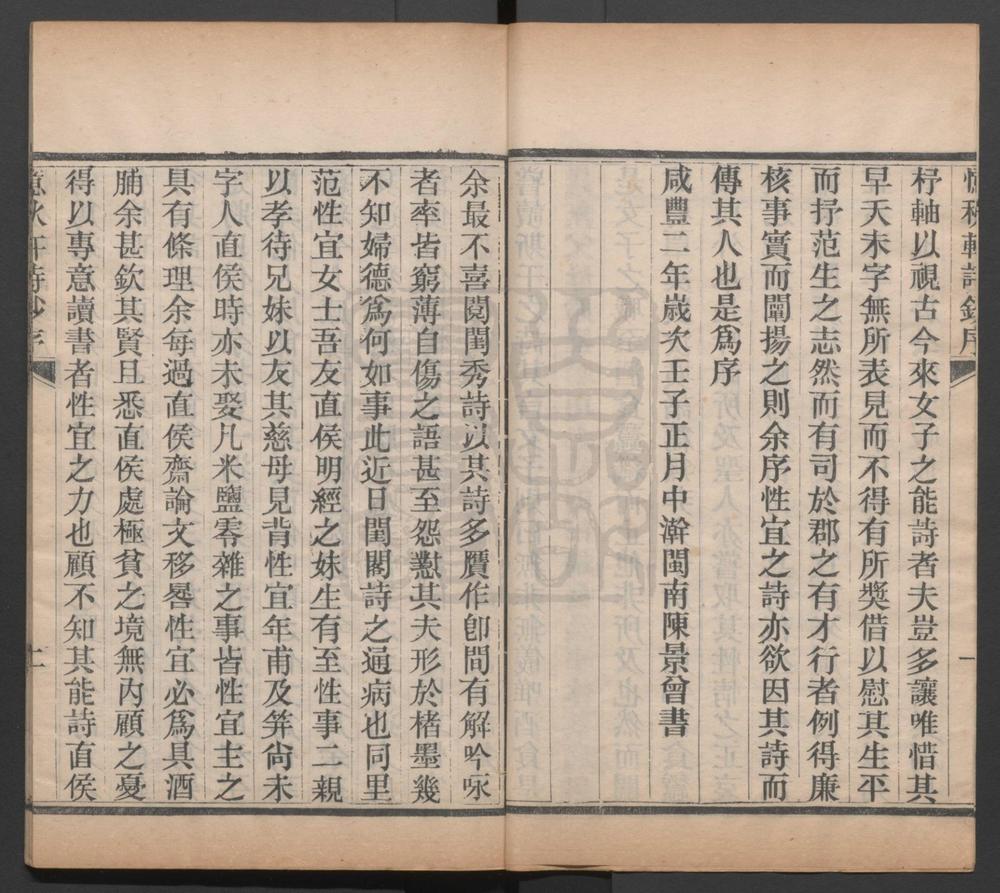 杼軸以視古今來女子之能詩者夫豈多讓唯惜其
早夭未字無所表見而不得有所獎借以慰其生平
而抒范生之志然而有司於郡之有才行者例得廉
核事實而闡揚之則余序性宜之詩亦欲因其詩而
傳其人也是爲序
咸豐二年歲次壬子正月中澣閩南陳景曾書
余最不喜閱閨秀詩以其詩多贋作卽間有解吟咏
者率皆窮薄自傷之語甚至怨懟其夫形於楮墨幾
不知婦德爲何如事此近日閨閣詩之通病也同里
范性宜女士吾友直侯明經之妹生有至性事二親
以孝待兄妹以友其慈母見背性宜年甫及笄尙未
字人直侯時亦未娶凡米鹽零雜之事皆性宜主之
具有條理余每過直侯齋論文移晷性宜必爲具酒
脯余甚欽其賢且悉直侯處極貧之境無內顧之憂
得以專意讀書者性宜之力也顧不知其能詩直侯